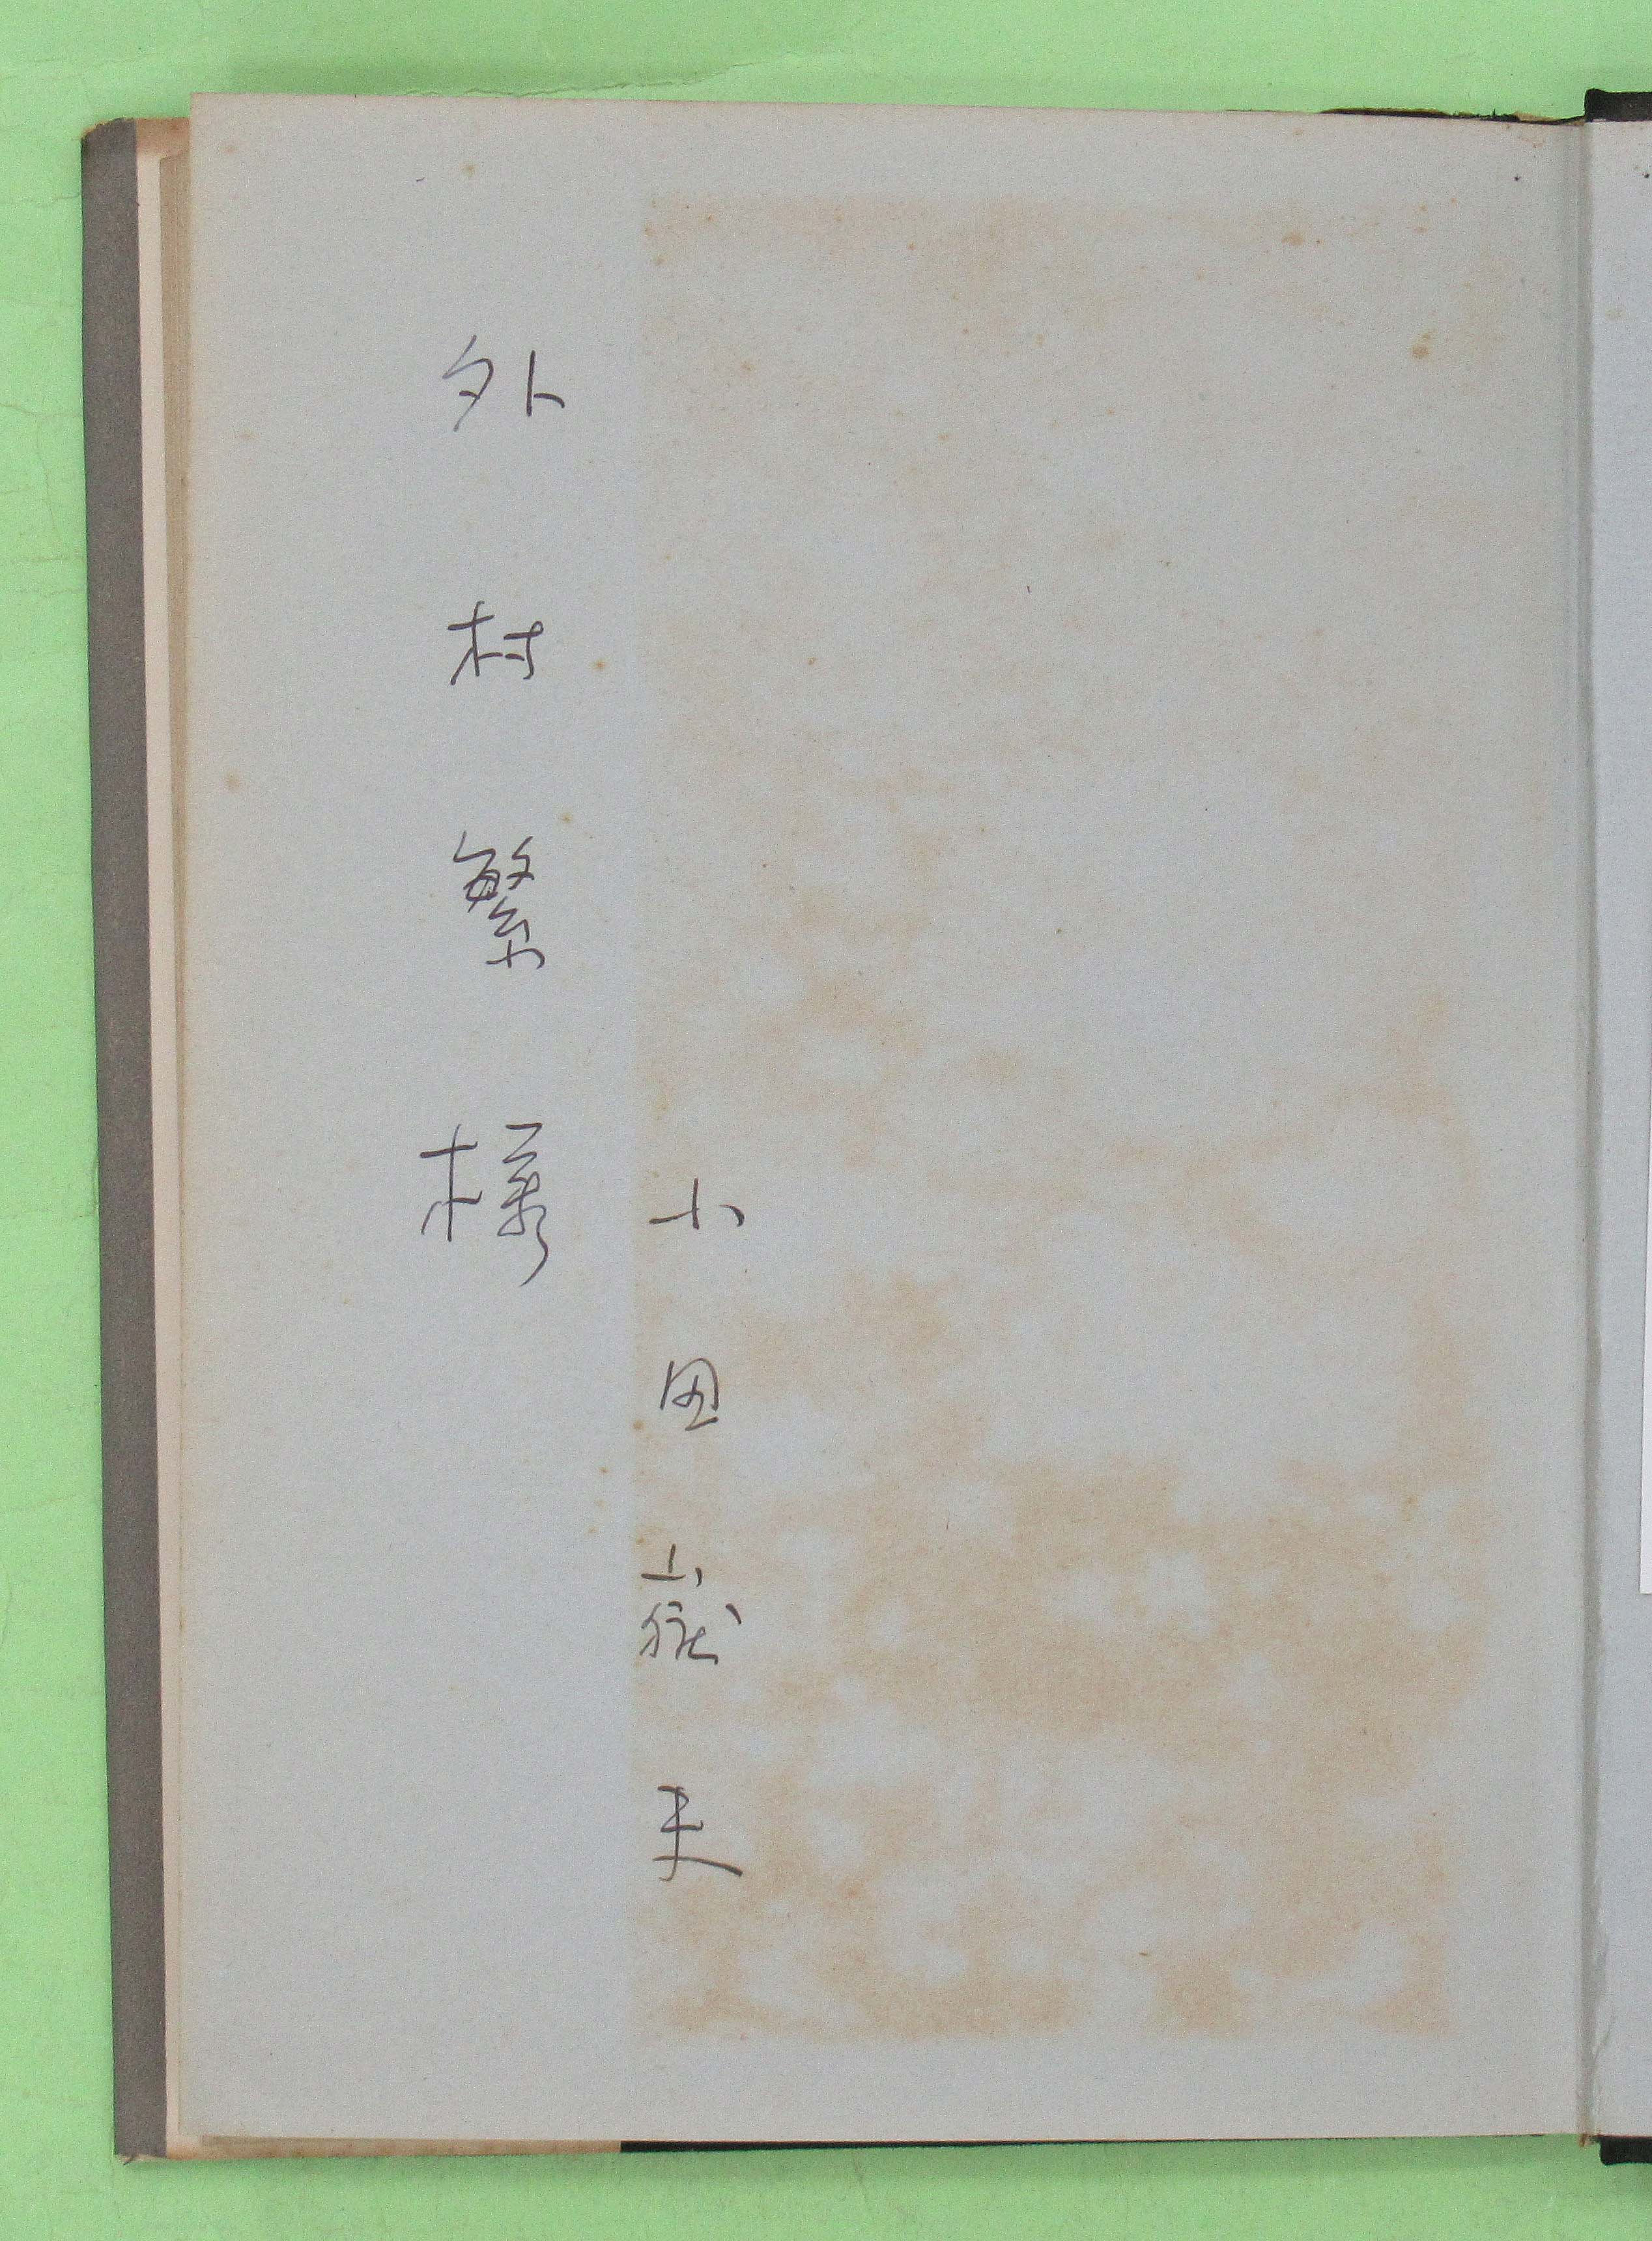 小田嶽夫
外村繁様